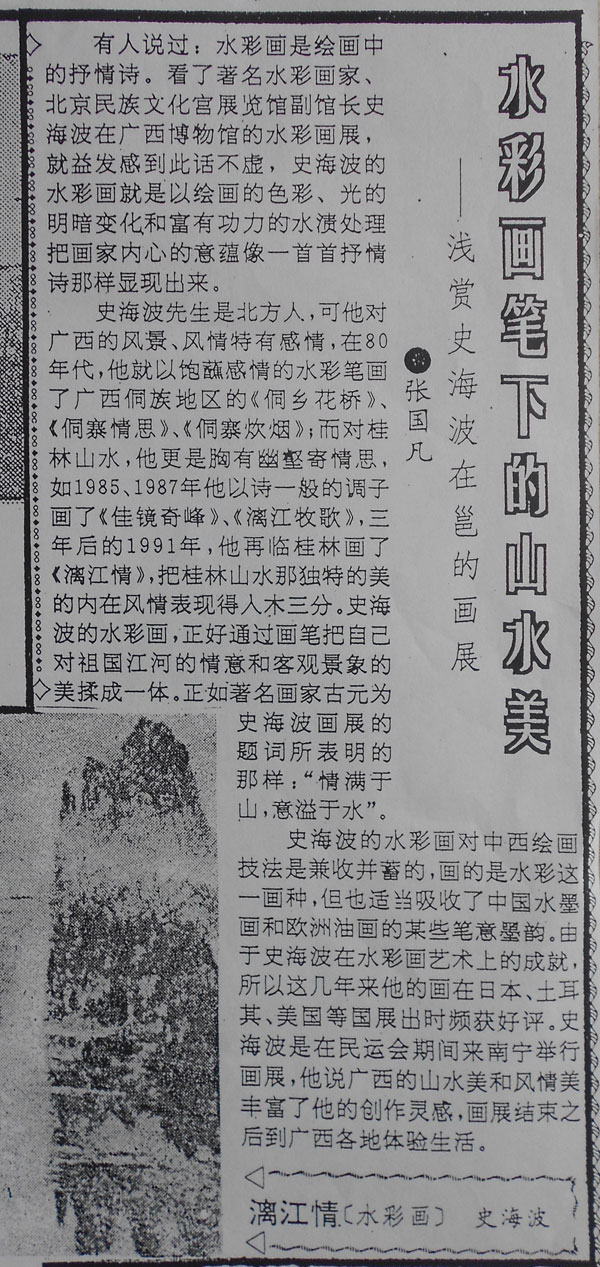 水彩画笔下的山水美
——浅赏史海波在邕的画展
张国凡
有人说过：水彩画是绘画中
的抒情诗。看了著名水彩画家、
北京民族文化宫展览馆副馆长史
海波在广西博物馆的水彩画展，
就益发感到此话不虚，史海波的
水彩画就是以绘画的色彩、光的
明暗变化和富有功力的水渍处理
把画家内心的意蕴像一首首抒情
诗那样显现出来。
史海波先生是北方人，可他对
广西的风景、风情特有感情，在80
年代，他就以饱蘸感情的水彩笔画
了广西侗族地区的《侗乡花桥》、
《侗寨情思》、《侗寨炊烟》；而对桂
林山水，他更是胸有幽壑寄情思，
如1985、1987年他以诗一般的调子
画了《佳镜奇峰》、《漓江牧歌》，三
年后的1991年，他再临桂林画了
《漓江情》，把桂林山水那独特的美
的内在风情表现得入木三分。史海
波的水彩画，正好通过画笔把自己
对祖国江河的情意和客观景象的
美揉成一体。正如著名画家古元为
史海波画展的
题词所表明的
那样：“情满于
山，意溢于水”。
史海波的水彩画对中西绘画
技法是兼收并蓄的，画的是水彩这
一画种，但也适当吸收了中国水墨
画和欧洲油画的某些笔意墨韵。由
于史海波在水彩画艺术上的成就，
所以这几年来他的画在日本、土耳
其、美国等国展出时频获好评。史
海波是在民运会期间来南宁举行
画展，他说广西的山水美和风情美
丰富了他的创作灵感，画展结束之
后到广西各地体验生活。
漓江情〔水彩画〕 史海波